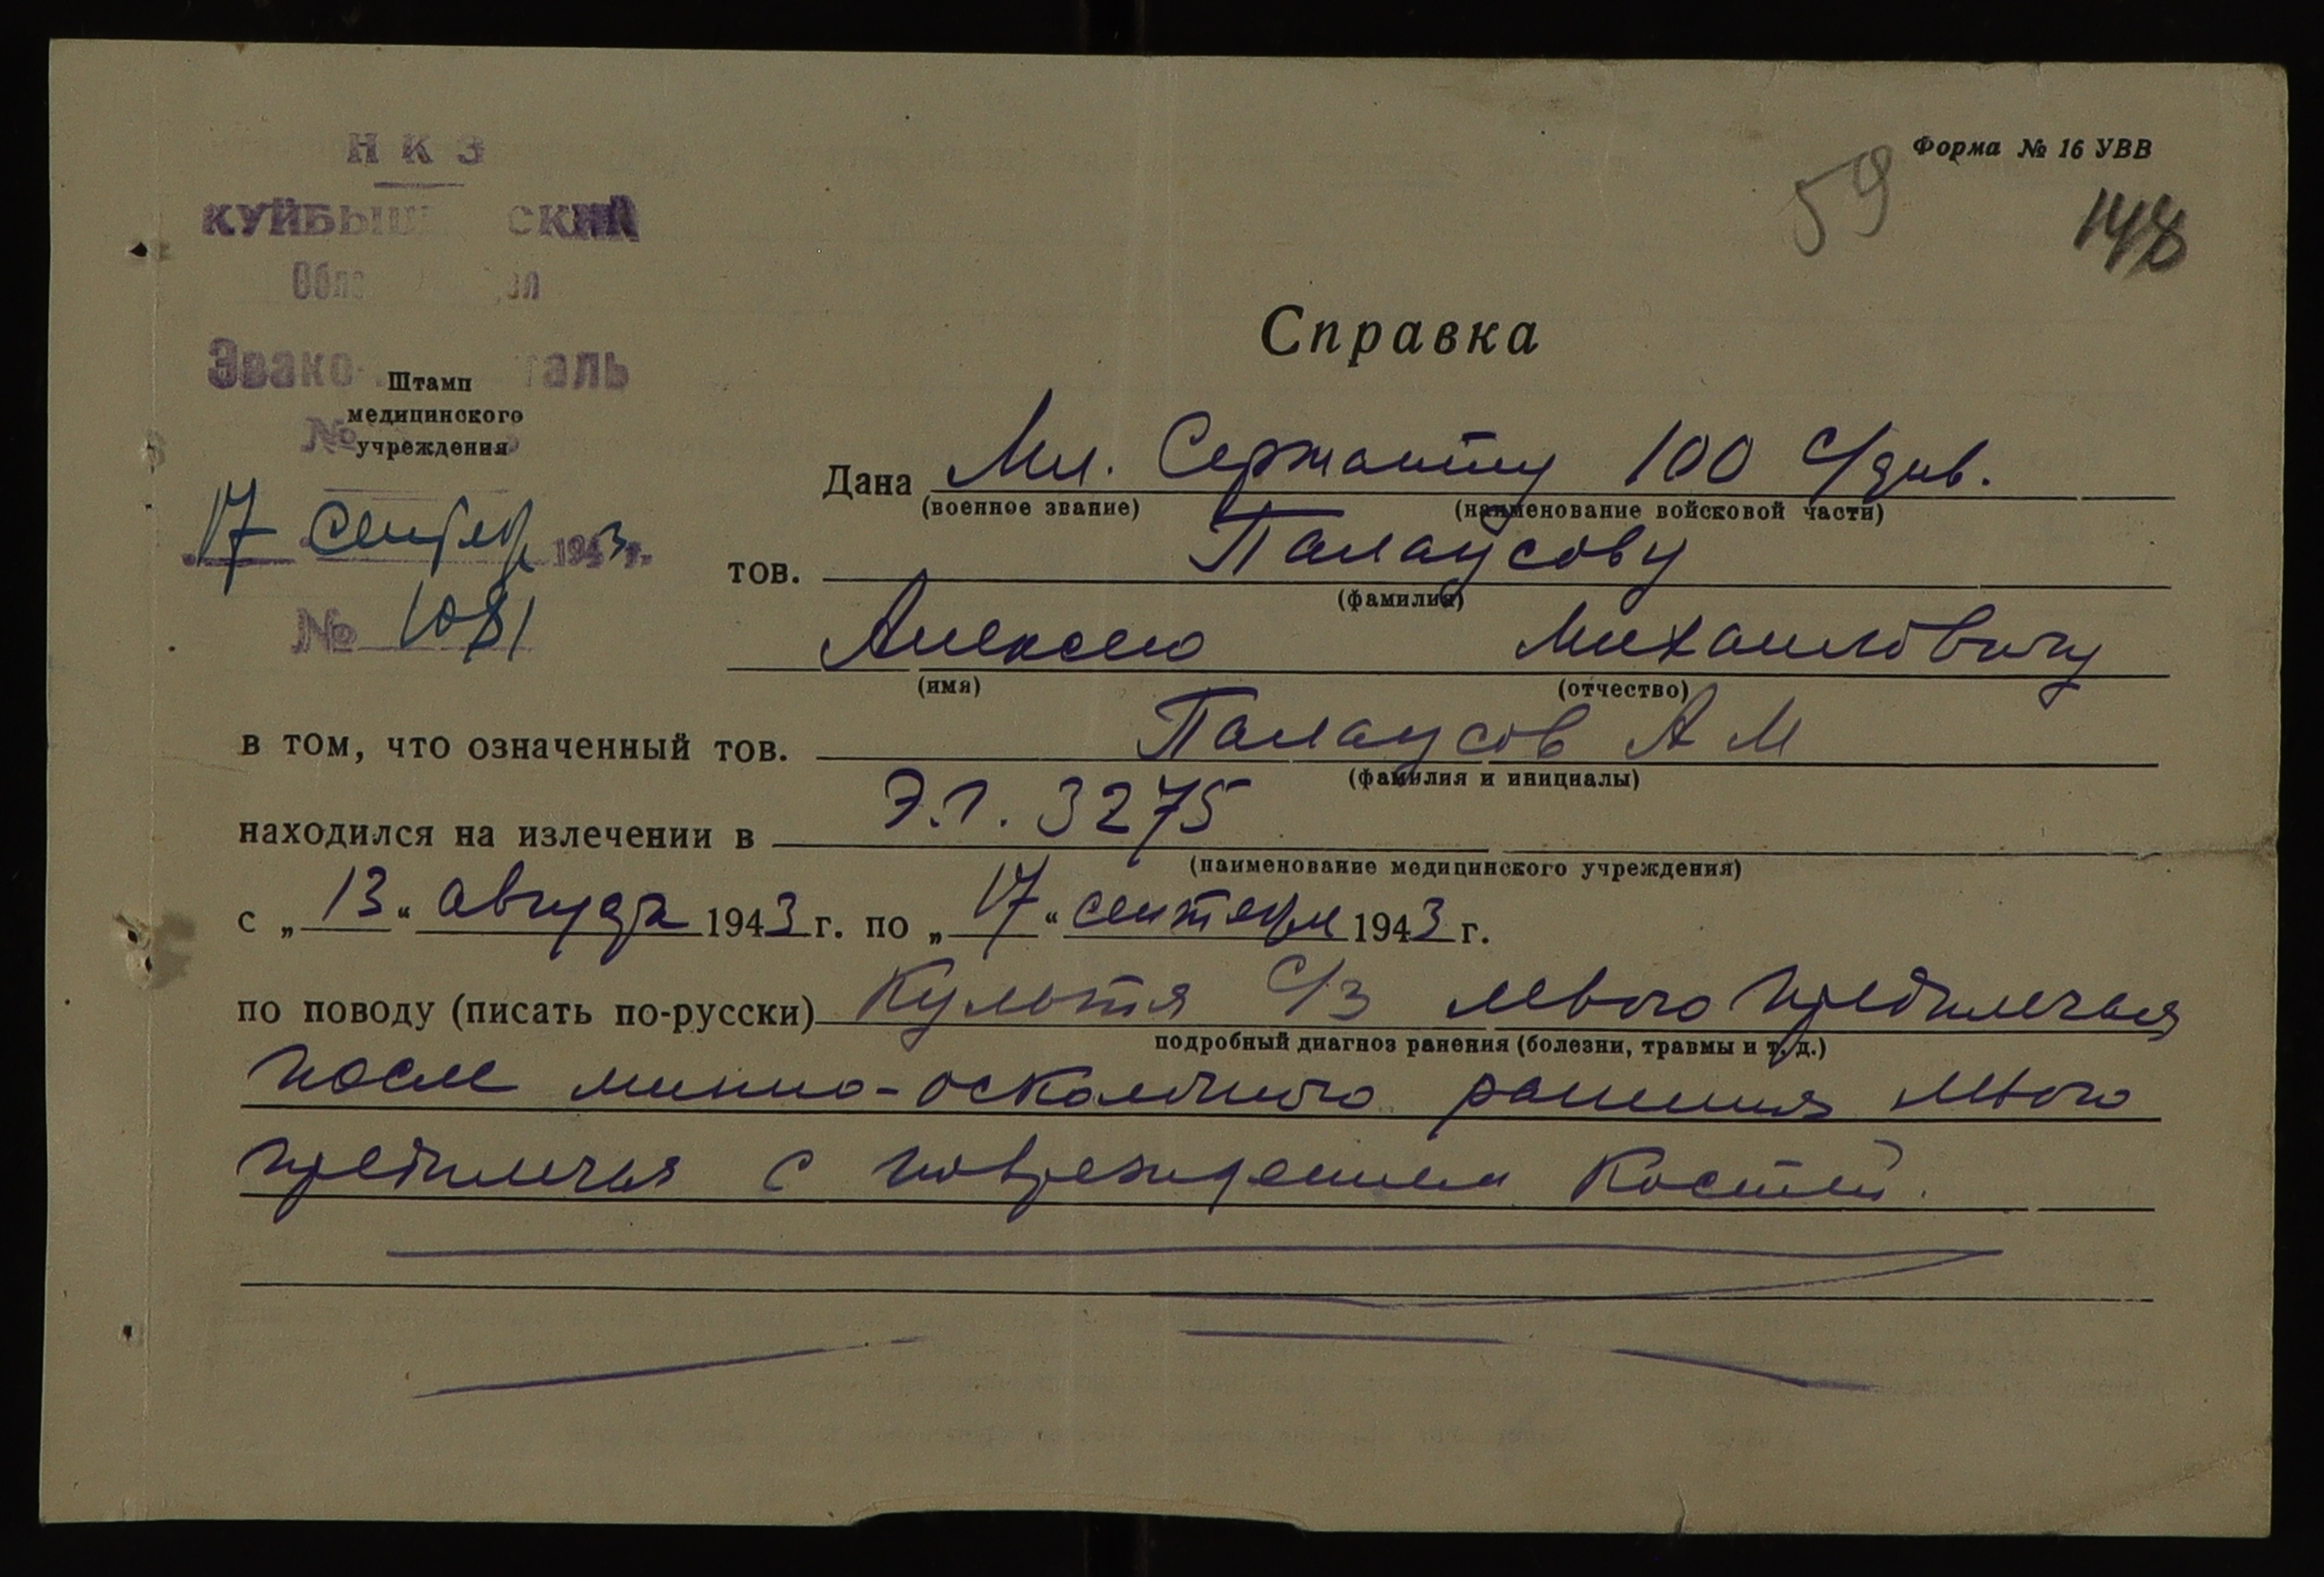 Форма № 16 УВВ
59
148
Н К З
КУЙБЫШ СКИЙ
Эвако таль
Штамп
медицинского
№ учреждения
17 Сентябр 1943 г.
№ 1081
Справка
Дана Мл. Сержанту 100 с/див.
(военное звание) (наименование войсковой части)
тов. Палаусову
(фамилия)
Алексею Михайловичу
(имя) (отчество)
в том, что означенный тов. Палаусов А М
(фамилия и инициалы)
находился на излечении в Э.Г. 3275
(наименование медицинского учреждения)
с „ 13 “ августа 1943 г. по „ 17 “ сентября 1943 г.
по поводу (писать по-русски) Культя с/з левого предплечья
подробный диагноз ранения (болезни, травмы и т. д.)
после минно-осколочного ранения левого
предплечья с повреждением костей.